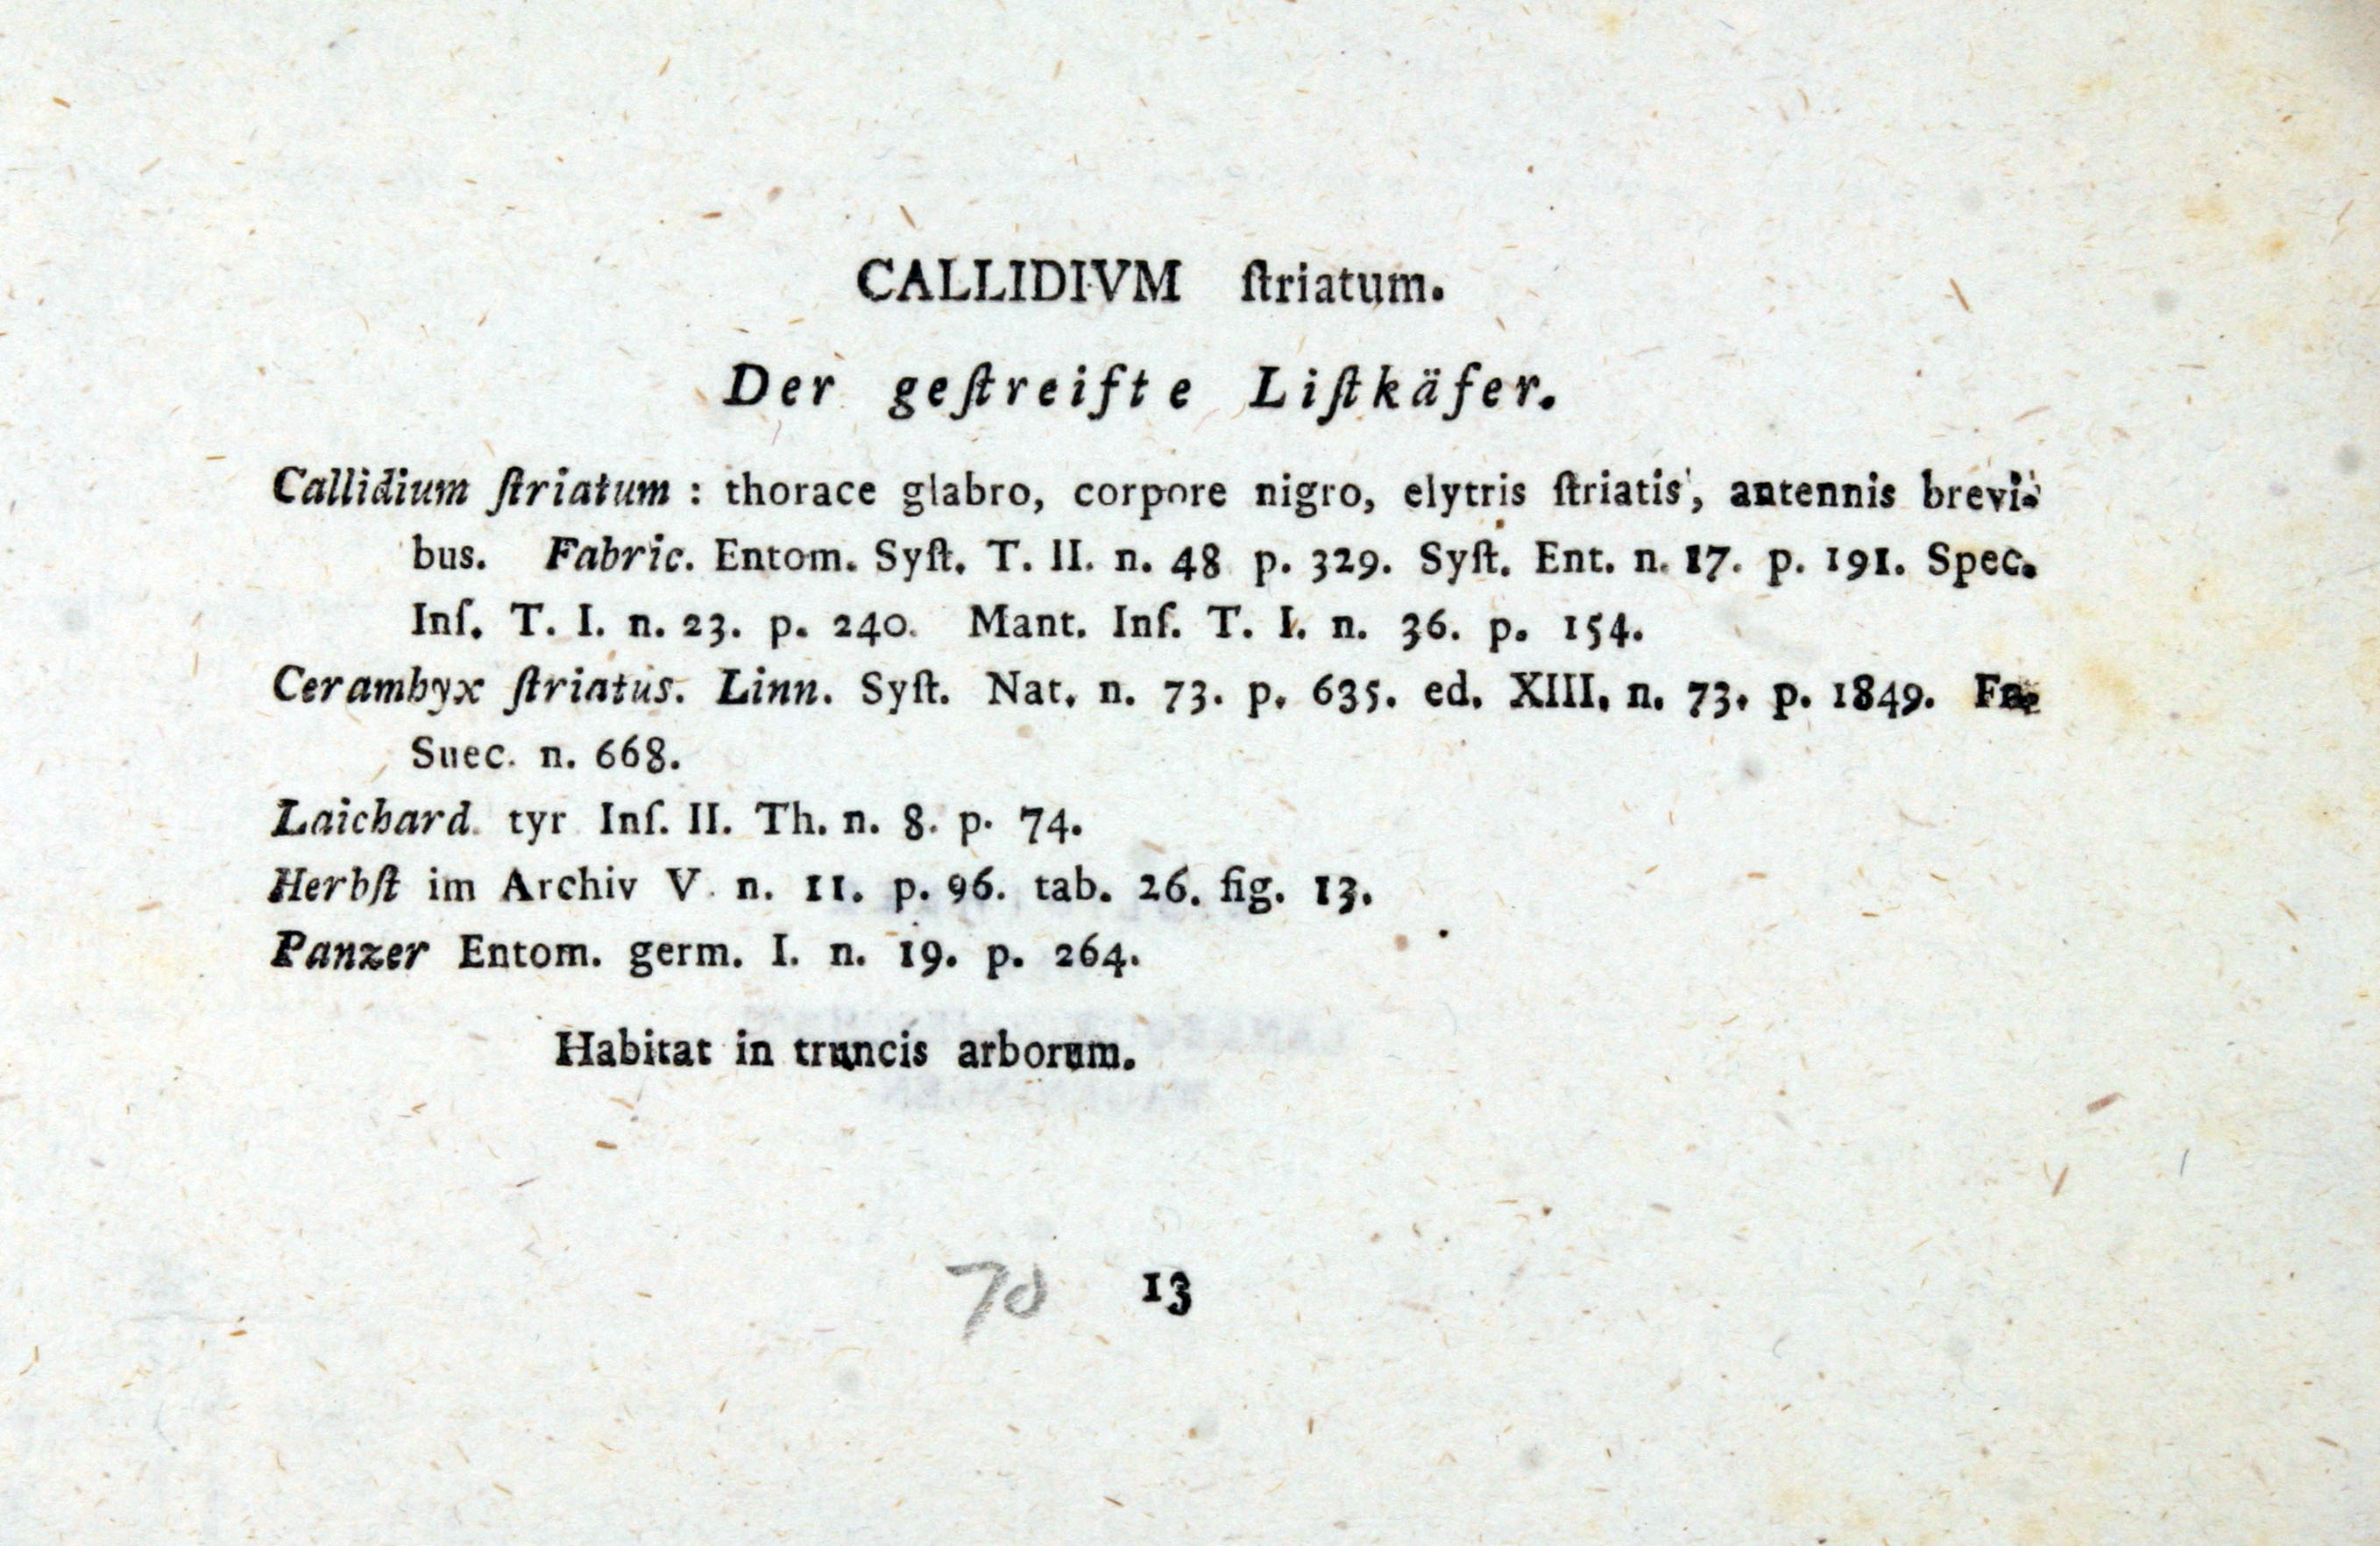 CALLIDIVM ſtriatum.
Der geſtreifte Liſtkäfer.
Callidium ſtriatum : thorace glabro, corpore nigro, elytris ſtriatis, antennis brevi-
bus. Fabric. Entom. Syſt. T. II. n. 48 p. 329. Syſt. Ent. n. 17. p. 191. Spec.
Inſ. T. I. n. 23. p. 240. Mant. Inſ. T. I. n. 36. p. 154.
Cerambyx ſtriatus. Linn. Syſt. Nat. n. 73. p. 635. ed. XIII. n. 73. p. 1849.
Suec. n. 668.
Laichard. tyr Inſ. II. Th. n. 8. p. 74.
Herbſt im Archiv V. n. 11. p. 96. tab. 26. fig. 13.
Panzer Entom. germ. I. n. 19. p. 264.
Habitat in truncis arborum.
70 13